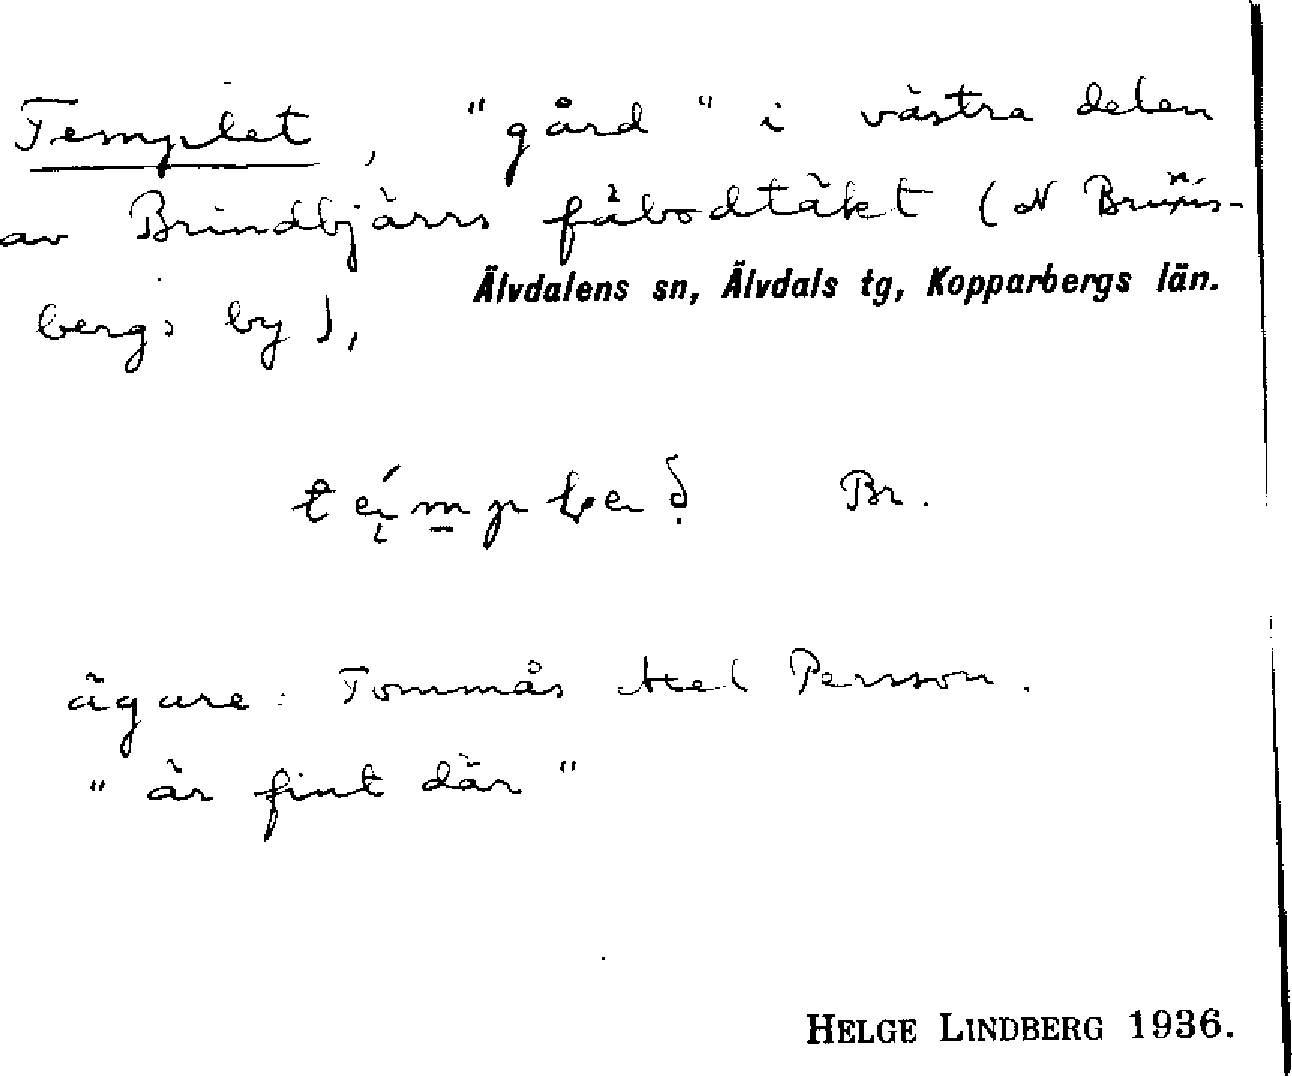 Templet, "gård" i västra delen
av Brindbjärrs fäbodtäkt (N
Älvdalens sn, Älvdals tg, Kopparbergs län.
bergs by),
Br.
ägare: Tommås Axel Persson.
"är fint där"
HELGE LINDBERG 1936.